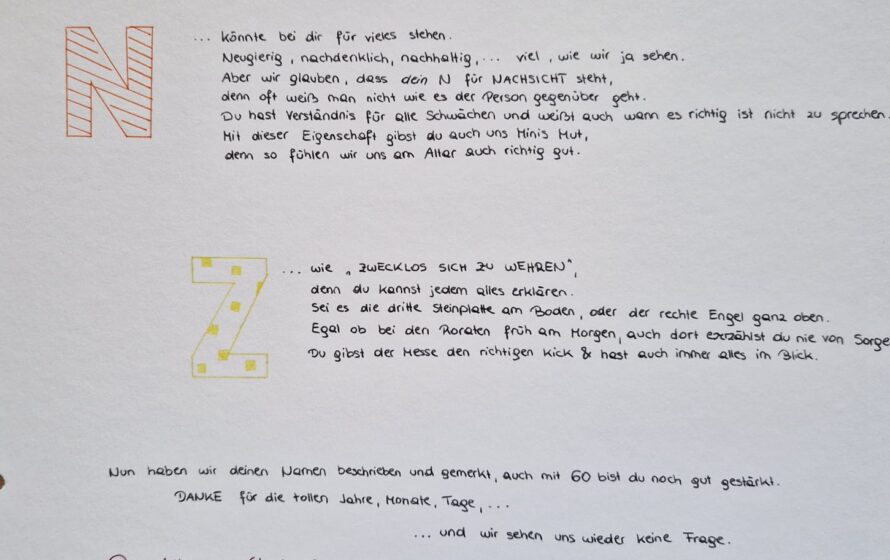 N ... könnte bei dir für vieles stehen.
Neugierig, nachdenklich, nachhaltig,... viel, wie wir ja sehen.
Aber wir glauben, dass dein N für NACHSICHT steht,
denn oft weiß man nicht wie es der Person gegenüber geht.
Du hast Verständnis für alle Schwächen und weißt auch wann es richtig ist nicht zu sprechen.
Mit dieser Eigenschaft gibst du auch uns Minis Mut,
denn so fühlen wir uns am Altar auch richtig gut.
Z ... wie „ZWECKLOS SICH ZU WEHREN",
denn du kannst jedem alles erklären.
Sei es die dritte Steinplatte am Boden, oder der rechte Engel ganz oben.
Egal ob bei den Roraten früh am Morgen, auch dort erzählst du nie von Sorge
Du gibst der Messe den richtigen Kick & hast auch immer alles im Blick.
Nun haben wir deinen Namen beschrieben und gemerkt, auch mit 60 bist du noch gut gestärkt.
DANKE für die tollen Jahre, Monate, Tage,...
... und wir sehen uns wieder keine Frage.